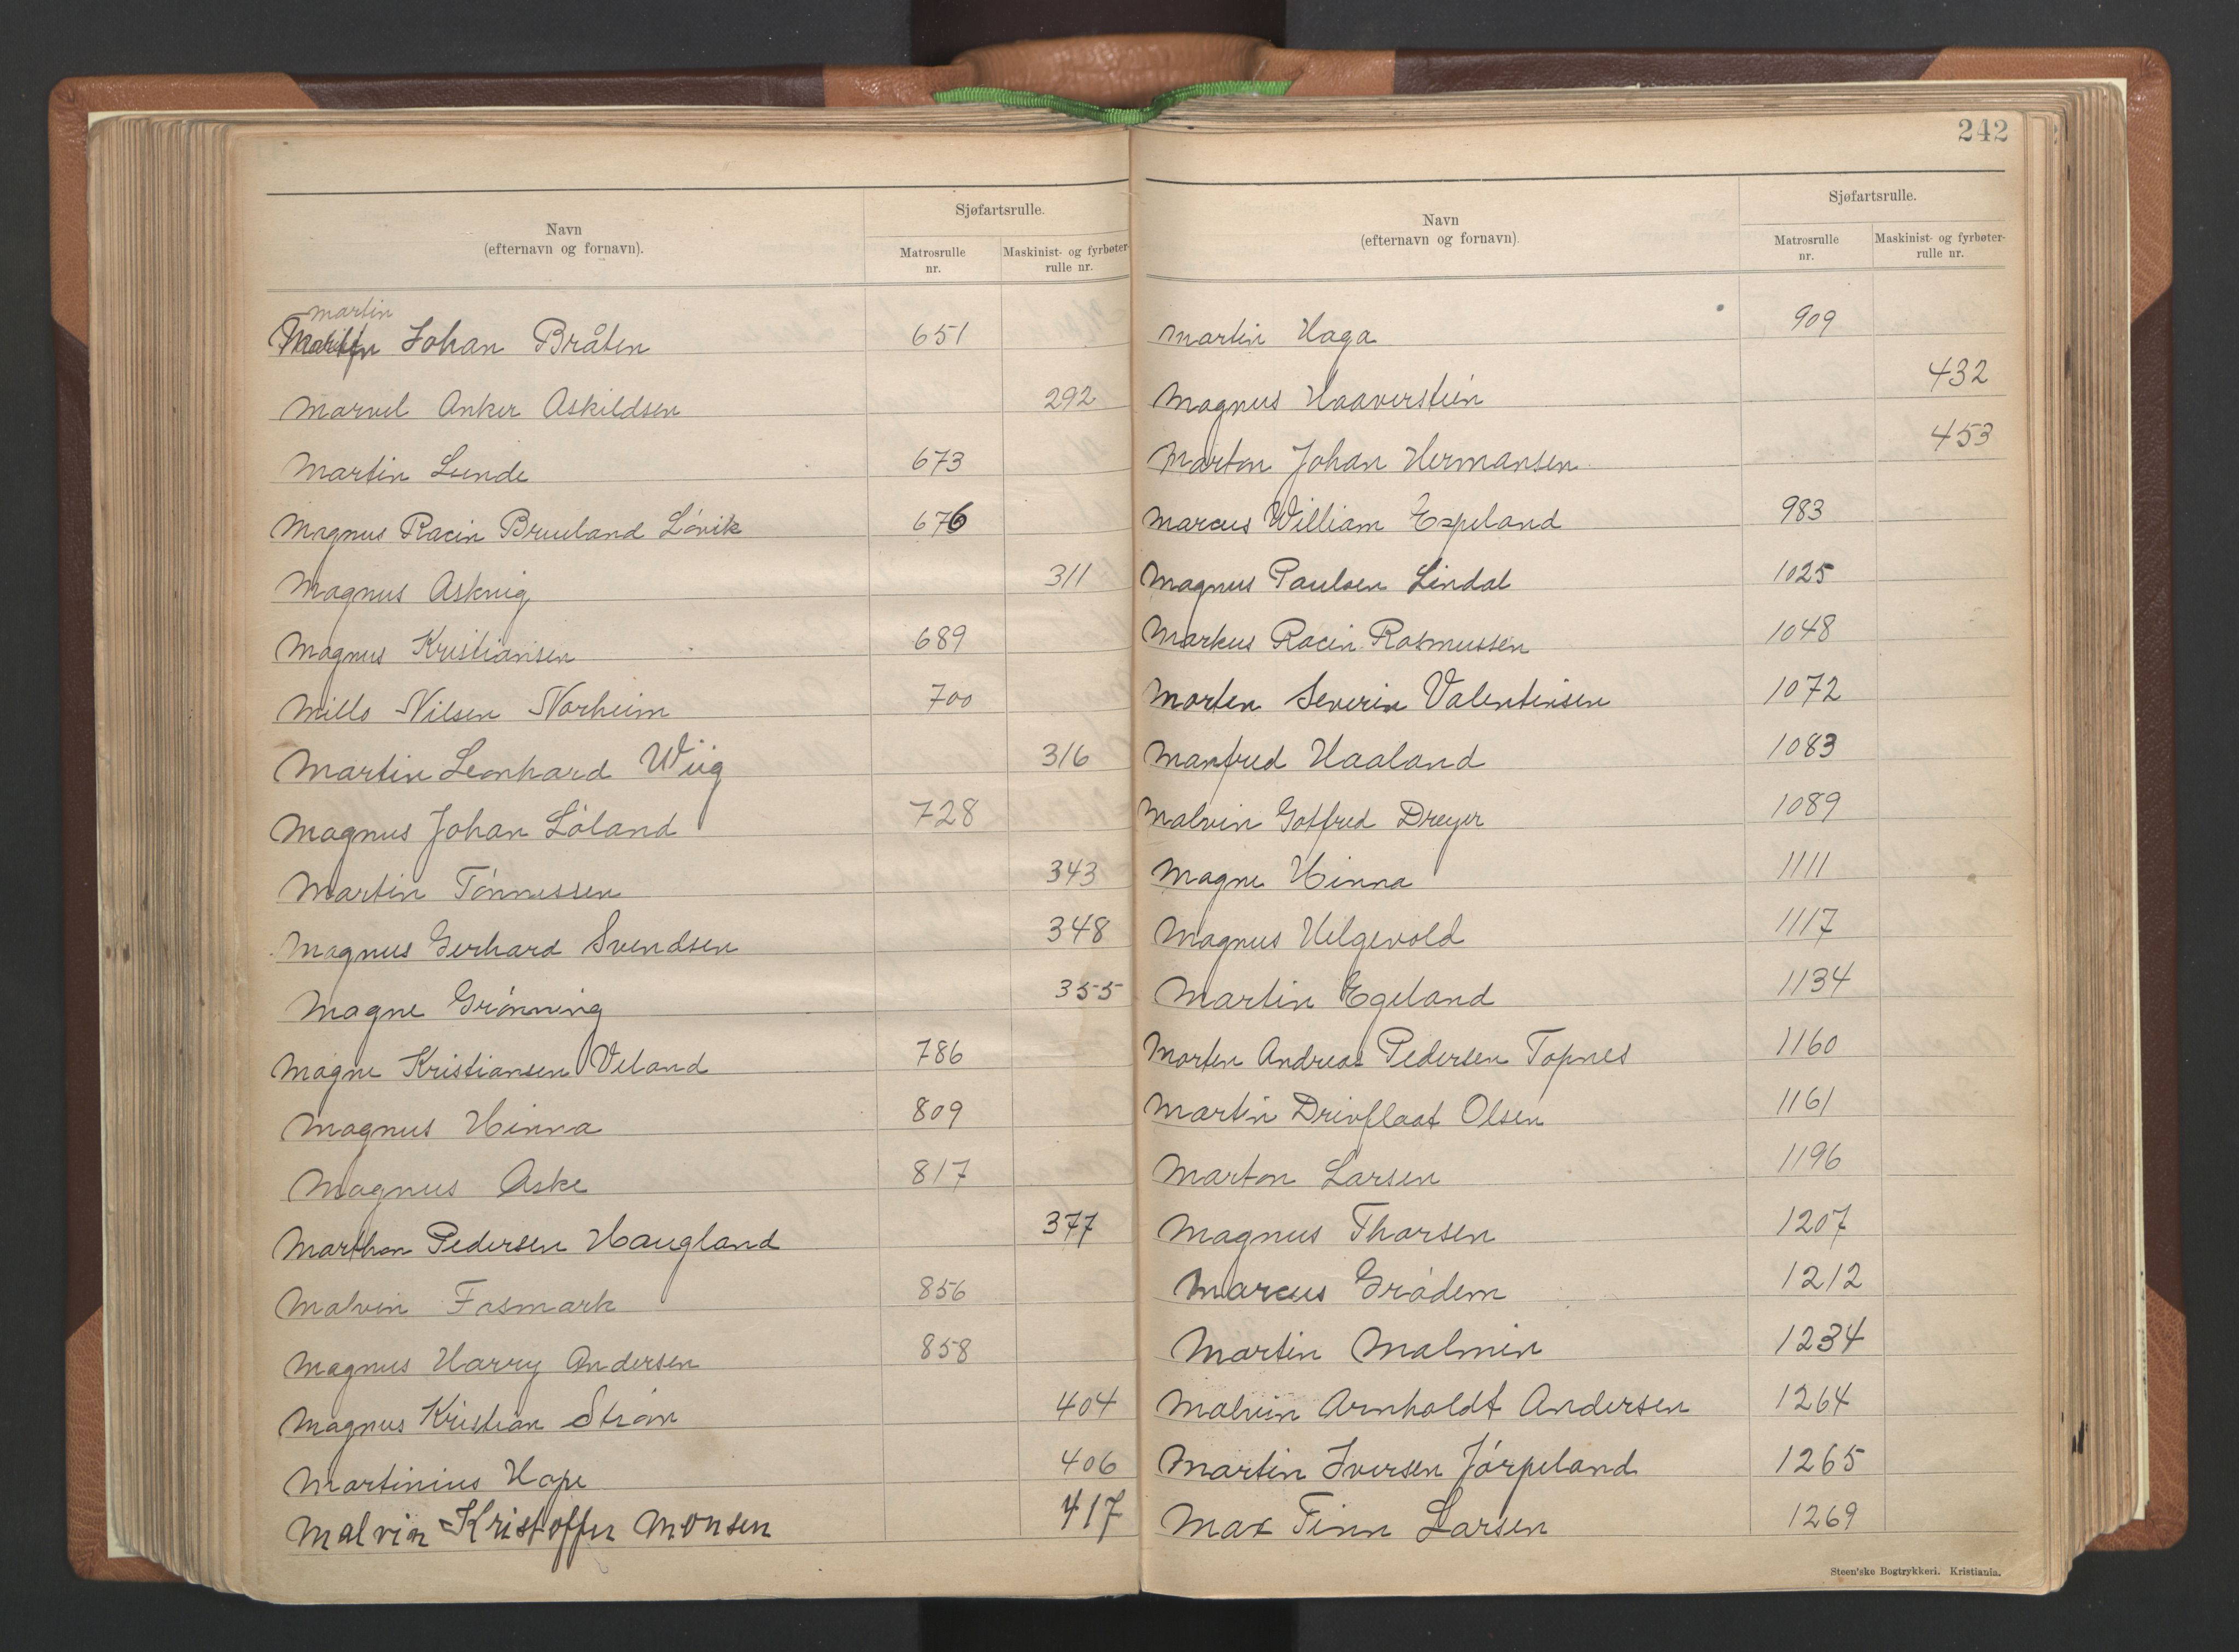 Navn
(efternavn og fornavn).
Sjøfartsrulle.
Matrosrulle
nr.
Maskinist- og fyrbøter-
rulle nr.
martin
Johan Bråten 651
Marvel Anker Askildsen 292
Martin Lunde 673
Magnus Racin Bruuland Lóvik 676
Magnus Askvig 311
Magnus Kristiansen 689
Mills Nilsen Norheim 700
Martin Leonhard Wiig 316
Magnus Johan Lóland 728
Martin Tónnessen 343
Magnus Gerhard Svendsen 348
Magne Grónning 355
Magne Kristiansen Veland 786
Magnus Hinna 809
Magnus Aske 817
Marthon Pedersen Haugland 377
Malvin Fasmark 856
Magnus Harry Andersen 858
Magnus Kristian Strøm 404
Martinius Hope 406
Malvin Kristoffer Monsen 417
242
Navn
(efternavn og fornavn).
Sjøfartsrulle.
Matrosrulle
nr.
Maskinist- og fyrbøter-
rulle nr.
Martin Haga 909
Magnus Haaverstein 432
Marton Johan Hermansen 453
Marcus William Espeland 983
Magnus Paulsen Lindal 1025
Markus Racin Rasmussen 1048
Morten Severin Valentinsen 1072
Manfred Haaland 1083
Malvin Gotfred Dreyer 1089
Magne Hinna 1111
Magnus Helgevold 1117
Martin Egeland 1134
Morten Andreas Pedersen Topnes 1160
Martin Drivflaat Olsen 1161
Marton Larsen 1196
Magnus Tharsen 1207
Marcus Grádem 1212
Martin Malmin 1234
Malvin Arnholdt Andersen 1264
Martin Iversen Jórpeland 1265
Max Finn Larsen 1269
Steen'ske Bogtrykkeri. Kristiania.